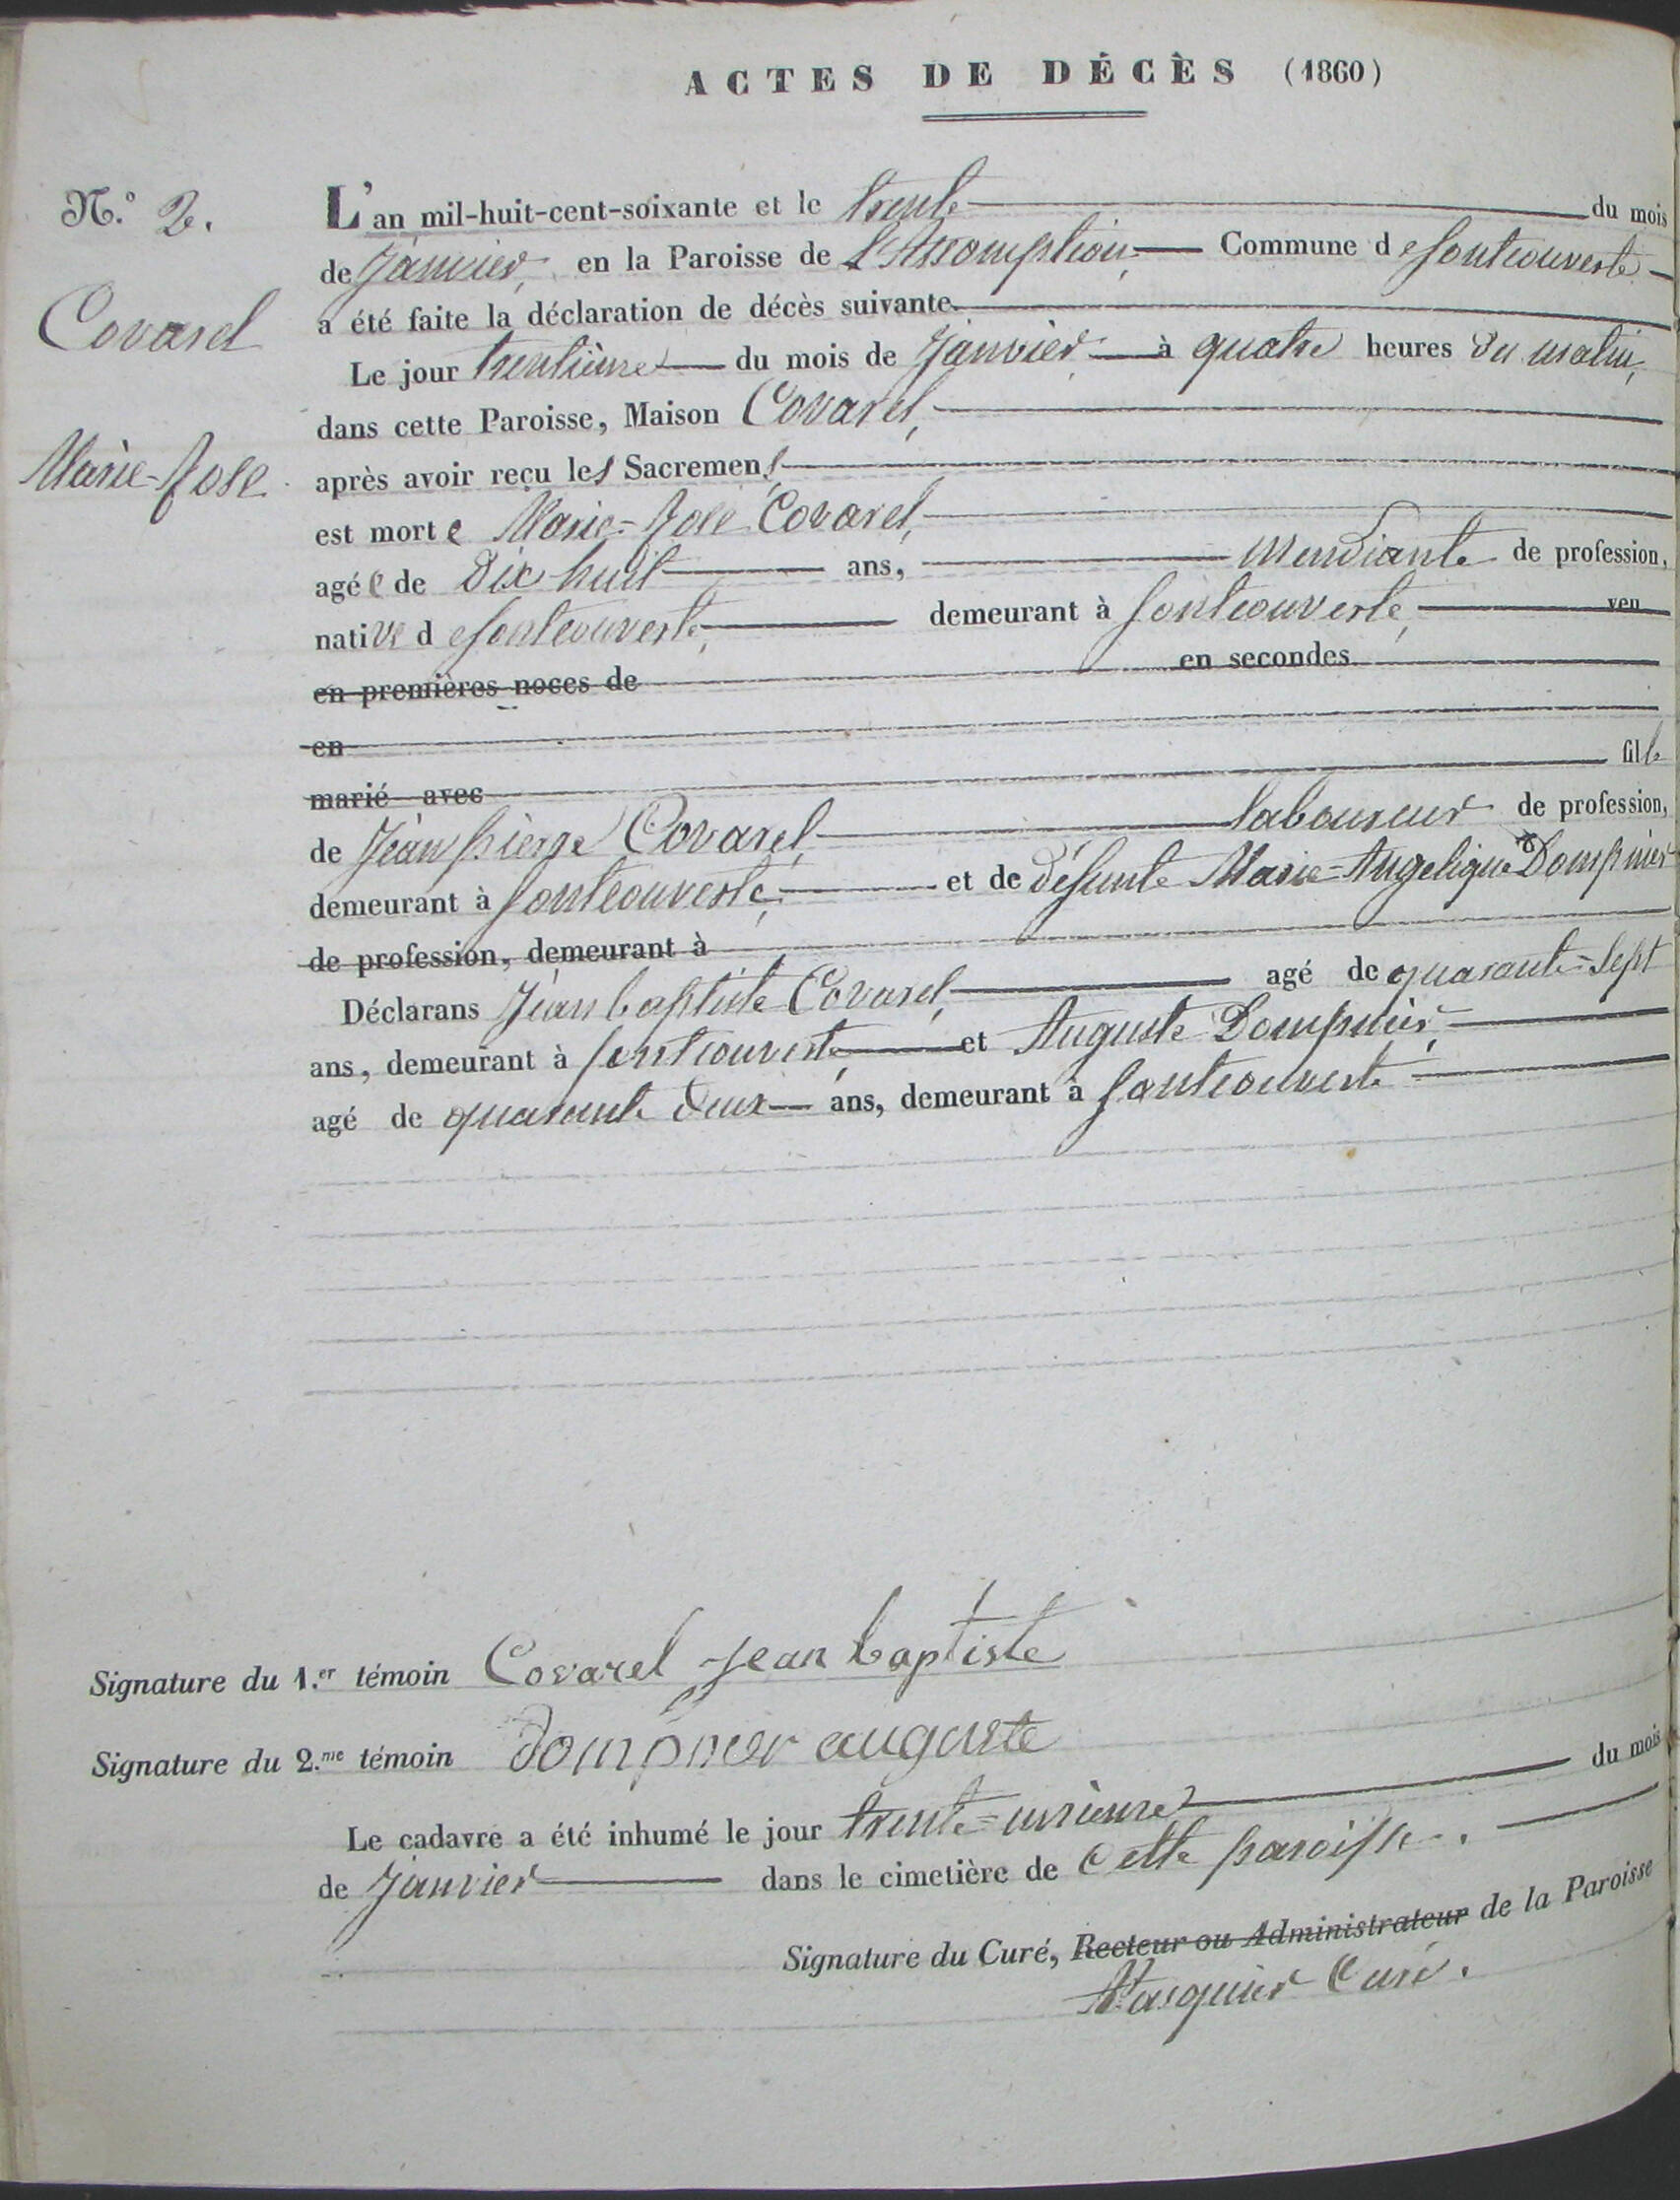 ACTES DE DÉCÈS (1860)
N.° 2.
Covarel
Marie-Jose
L'an mil-huit-cent-soixante et le trente du mois
de Janvier, en la Paroisse de L'Assomption, Commune de fontcouverte
a été faite la déclaration de décès suivante
Le jour trentième du mois de Janvier à quatre heures du matin,
dans cette Paroisse, Maison Covarel,
après avoir reçu les Sacremens,
est morte Marie=Jose Covarel,
agée de dix huit ans, mendiante de profession,
native de fontcouverte, demeurant à fontcouverte, veu
en premières noces de en secondes
en
marié avec fille
de Jean pierre Covarel, laboureur de profession,
demeurant à fontcouverte, et de défunte Marie=Angelique Dompnier
de profession, demeurant à
Déclarans Jean baptiste Covarel, agé de quarante=sept
ans, demeurant à fontcouverte, et Auguste Dompnier,
agé de quarante deux ans, demeurant à fontcouverte
Signature du 1.er témoin Covarel jean baptiste
Signature du 2.me témoin dompnier auguste
Le cadavre a été inhumé le jour trente=unième du mois
de Janvier dans le cimetière de cette paroisse.
Signature du Curé, Recteur ou Administrateur de la Paroisse
Curé.